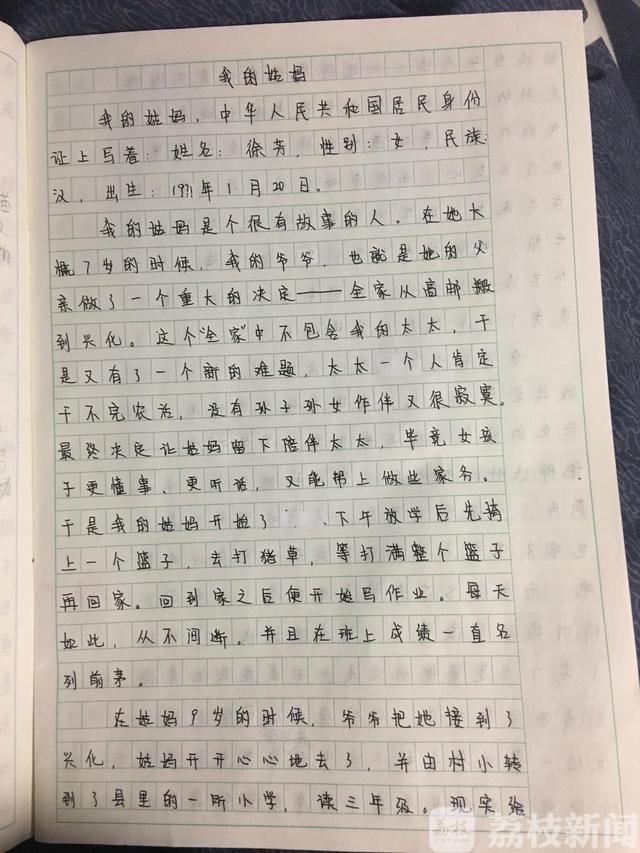 我的姑妈
我的姑妈，中华人民共和国居民身份
证上写着：姓名：徐芳，性别：女，民族：
汉，出生：1971年1月20日。
我的姑妈是个很有故事的人。在她大
概7岁的时候，我的爷爷，也就是她的父
亲做了一个重大的决定——全家从高邮搬
到兴化。这个“全家”中不包含我的太太，于
是又有了一个新的难题，太太一个人肯定
干不完农活，没有孙子孙女作伴又很寂寞。
最终决定让姑妈留下陪伴太太，毕竟女孩
子更懂事、更听话，又能帮上做些家务。
于是我的姑妈开始了 下午放学后先骑
上一个篮子，去打猪草，等打满整个篮子
再回家。回到家之后便开始写作业。每天
如此，从不间断。并且在班上成绩一直名
列前茅。
在姑妈9岁的时候，爷爷把她接到了
兴化，姑妈开开心心地去了，并由村小转
到了县里的一所小学，读三年级。现实给
荔枝 荔枝新闻